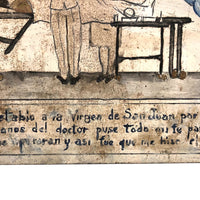 etablo a la Virgen de San Juan por
anos del doctor puse todo mi fe pa
operaran y asi fue que me hiso el